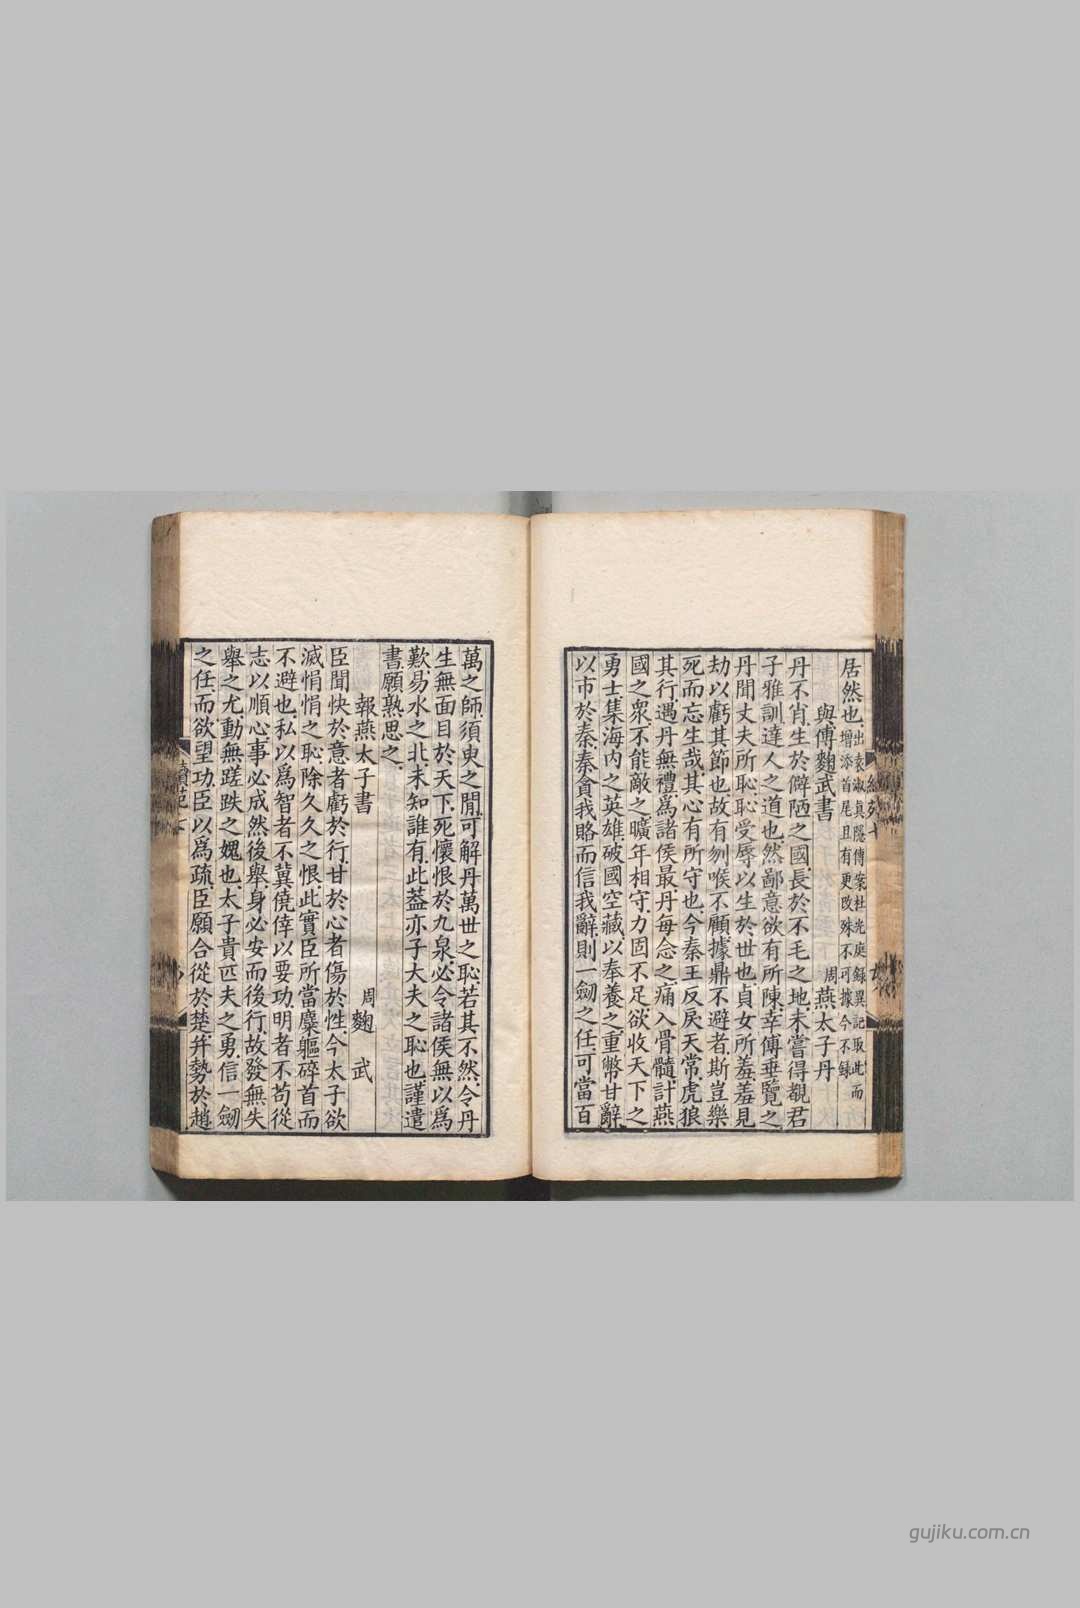 居然也出袁淑真隱傳案杜光庭録異記取此而
增添首尾且有更改殊不可據今不録
與傅麴武書
周燕太子丹
丹不肖生於僻陋之國長於不毛之地未嘗得覩君
子雅訓達人之道也然鄙意欲有所陳幸傅垂覽之
丹聞丈夫所恥恥受辱以生於世也貞女所羞羞見
劫以虧其節也故有刎喉不顧據鼎不避者斯豈樂
死而忘生哉其心有所守也今秦王反戾天常虎狼
其行遇丹無禮爲諸侯最丹每念之痛入骨髓計燕
國之衆不能敵之曠年相守力固不足欲收天下之
勇士集海内之英雄破國空藏以奉養之重幣甘辭
以市於秦秦貪我賂而信我辭則一劒之任可當百
萬之師須臾之閒可解丹萬世之恥若其不然令丹
生無面目於天下死懷恨於九泉必令諸侯無以爲
歎易水之北未知誰有此葢亦子大夫之恥也謹遣
書願熟思之
報燕太子書
周麴武
臣聞快於意者虧於行甘於心者傷於性今太子欲
滅悁悁之恥除久久之恨此實臣所當麋軀碎首而
不避也私以爲智者不冀僥倖以要功明者不苟從
志以順心事必成然後舉身必安而後行故發無失
舉之尤動無蹉跌之媿也太子貴匹夫之勇信一劒
之任而欲望功臣以爲疏臣願合從於楚并勢於趙
gujiku.com.cn